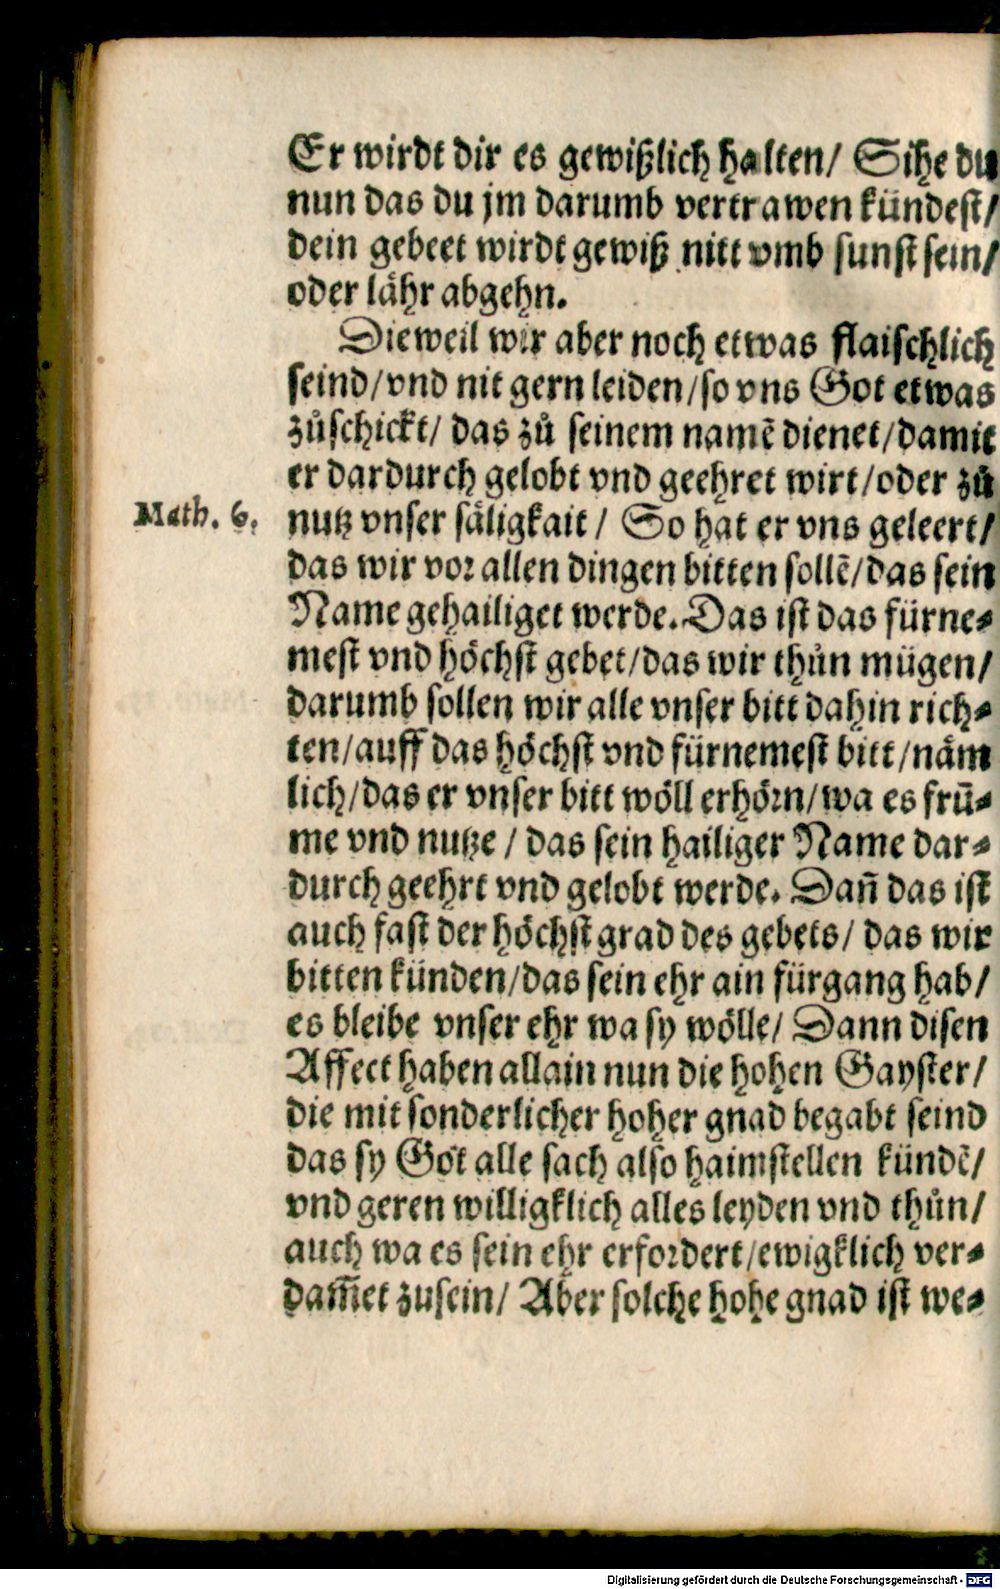 Er wirdt dir es gewißlich halten/ Sihe du
nun das du jm darumb vertrawen kündest/
dein gebeet wirdt gewiß nitt vmb sunst sein/
oder lähr abgehn.
Dieweil wir aber noch etwas flaischlich
seind/vnd nit gern leiden/so vns Got etwas
zůschickt/ das zů seinem namē dienet/damit
er dardurch gelobt vnd geehret wirt/oder zů
Math. 6.
nutz vnser säligkait / So hat er vns geleert/
das wir vor allen dingen bitten sollē/das sein
Name gehailiget werde. Das ist das fürne-
mest vnd höchst gebet/das wir thůn mügen/
darumb sollen wir alle vnser bitt dahin rich-
ten/auff das höchst vnd fürnemest bitt/näm
lich/das er vnser bitt wöll erhörn/wa es frū-
me vnd nutze / das sein hailiger Name dar-
durch geehrt vnd gelobt werde. Dañ das ist
auch fast der höchst grad des gebets/ das wir
bitten künden/das sein ehr ain fürgang hab/
es bleibe vnser ehr wa sy wölle/ Dann disen
Affect haben allain nun die hohen Gayster/
die mit sonderlicher hoher gnad begabt seind
das sy Got alle sach also haimstellen kündē/
vnd geren willigklich alles leyden vnd thůn/
auch wa es sein ehr erfordert/ewigklich ver-
dam̄et zusein/ Aber solche hohe gnad ist we-
Digitalisierung gefördert durch die Deutsche Forschungsgemeinschaft - DFG